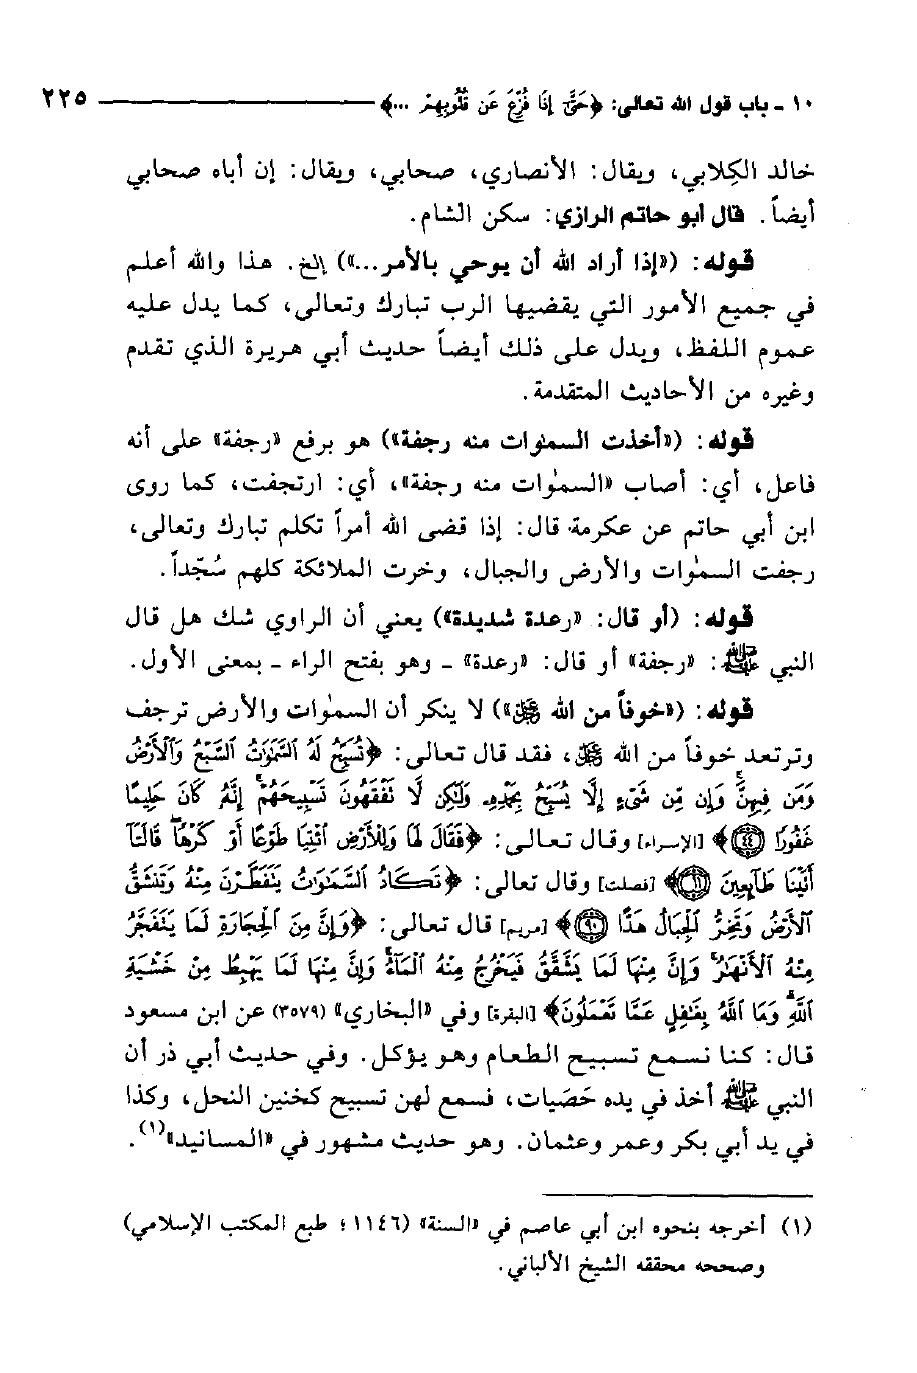 ١٠ - باب قول الله تعالى: ﴿حَتَّىٰ إِذَا فُزِّعَ عَن قُلُوبِهِمْ ...﴾ ٢٢٥
خالد الكِلابي، ويقال: الأنصاري، صحابي، ويقال: إن أباه صحابي
أيضاً. قال أبو حاتم الرازي: سكن الشام.
قوله: («إذا أراد الله أن يوحي بالأمر...») إلخ. هذا والله أعلم
في جميع الأمور التي يقضيها الرب تبارك وتعالى، كما يدل عليه
عموم اللفظ، ويدل على ذلك أيضاً حديث أبي هريرة الذي تقدم
وغيره من الأحاديث المتقدمة.
قوله: («أخذت السمٰوات منه رجفة») هو برفع «رجفة» على أنه
فاعل، أي: أصاب «السمٰوات منه رجفة»، أي: ارتجفت، كما روى
ابن أبي حاتم عن عكرمة قال: إذا قضى الله أمراً تكلم تبارك وتعالى،
رجفت السمٰوات والأرض والجبال، وخرت الملائكة كلهم سُجّداً.
قوله: (أو قال: «رعدة شديدة») يعني أن الراوي شك هل قال
النبي ﷺ: «رجفة» أو قال: «رعدة» - وهو بفتح الراء - بمعنى الأول.
قوله: («خوفاً من الله ﷻ») لا ينكر أن السمٰوات والأرض ترجف
وترتعد خوفاً من الله ﷻ، فقد قال تعالى: ﴿تُسَبِّحُ لَهُ ٱلسَّمَٰوَٰتُ ٱلسَّبْعُ وَٱلْأَرْضُ
وَمَن فِيهِنَّ ۚ وَإِن مِّن شَىْءٍ إِلَّا يُسَبِّحُ بِحَمْدِهِۦ وَلَٰكِن لَّا تَفْقَهُونَ تَسْبِيحَهُمْ ۗ إِنَّهُۥ كَانَ حَلِيمًا
غَفُورًا ٤٤﴾ [الإسراء] وقال تعالى: ﴿فَقَالَ لَهَا وَلِلْأَرْضِ ٱئْتِيَا طَوْعًا أَوْ كَرْهًا ۖ قَالَتَآ
أَتَيْنَا طَآئِعِينَ ١١﴾ [فصلت] وقال تعالى: ﴿تَكَادُ ٱلسَّمَٰوَٰتُ يَتَفَطَّرْنَ مِنْهُ وَتَنشَقُّ
ٱلْأَرْضُ وَتَخِرُّ ٱلْجِبَالُ هَدًّا ٩٠﴾ [مريم] قال تعالى: ﴿وَإِنَّ مِنَ ٱلْحِجَارَةِ لَمَا يَتَفَجَّرُ
مِنْهُ ٱلْأَنْهَٰرُ ۚ وَإِنَّ مِنْهَا لَمَا يَشَّقَّقُ فَيَخْرُجُ مِنْهُ ٱلْمَآءُ ۚ وَإِنَّ مِنْهَا لَمَا يَهْبِطُ مِنْ خَشْيَةِ
ٱللَّهِ ۗ وَمَا ٱللَّهُ بِغَٰفِلٍ عَمَّا تَعْمَلُونَ﴾ [البقرة] وفي «البخاري» (٣٥٧٩) عن ابن مسعود
قال: كنا نسمع تسبيح الطعام وهو يؤكل. وفي حديث أبي ذر أن
النبي ﷺ أخذ في يده حَصَيات، فسمع لهن تسبيح كحَنين النحل، وكذا
في يد أبي بكر وعمر وعثمان. وهو حديث مشهور في «المسانيد»(١).
(١) أخرجه بنحوه ابن أبي عاصم في «السنة» (١١٤٦؛ طبع المكتب الإسلامي)
وصححه محققه الشيخ الألباني.